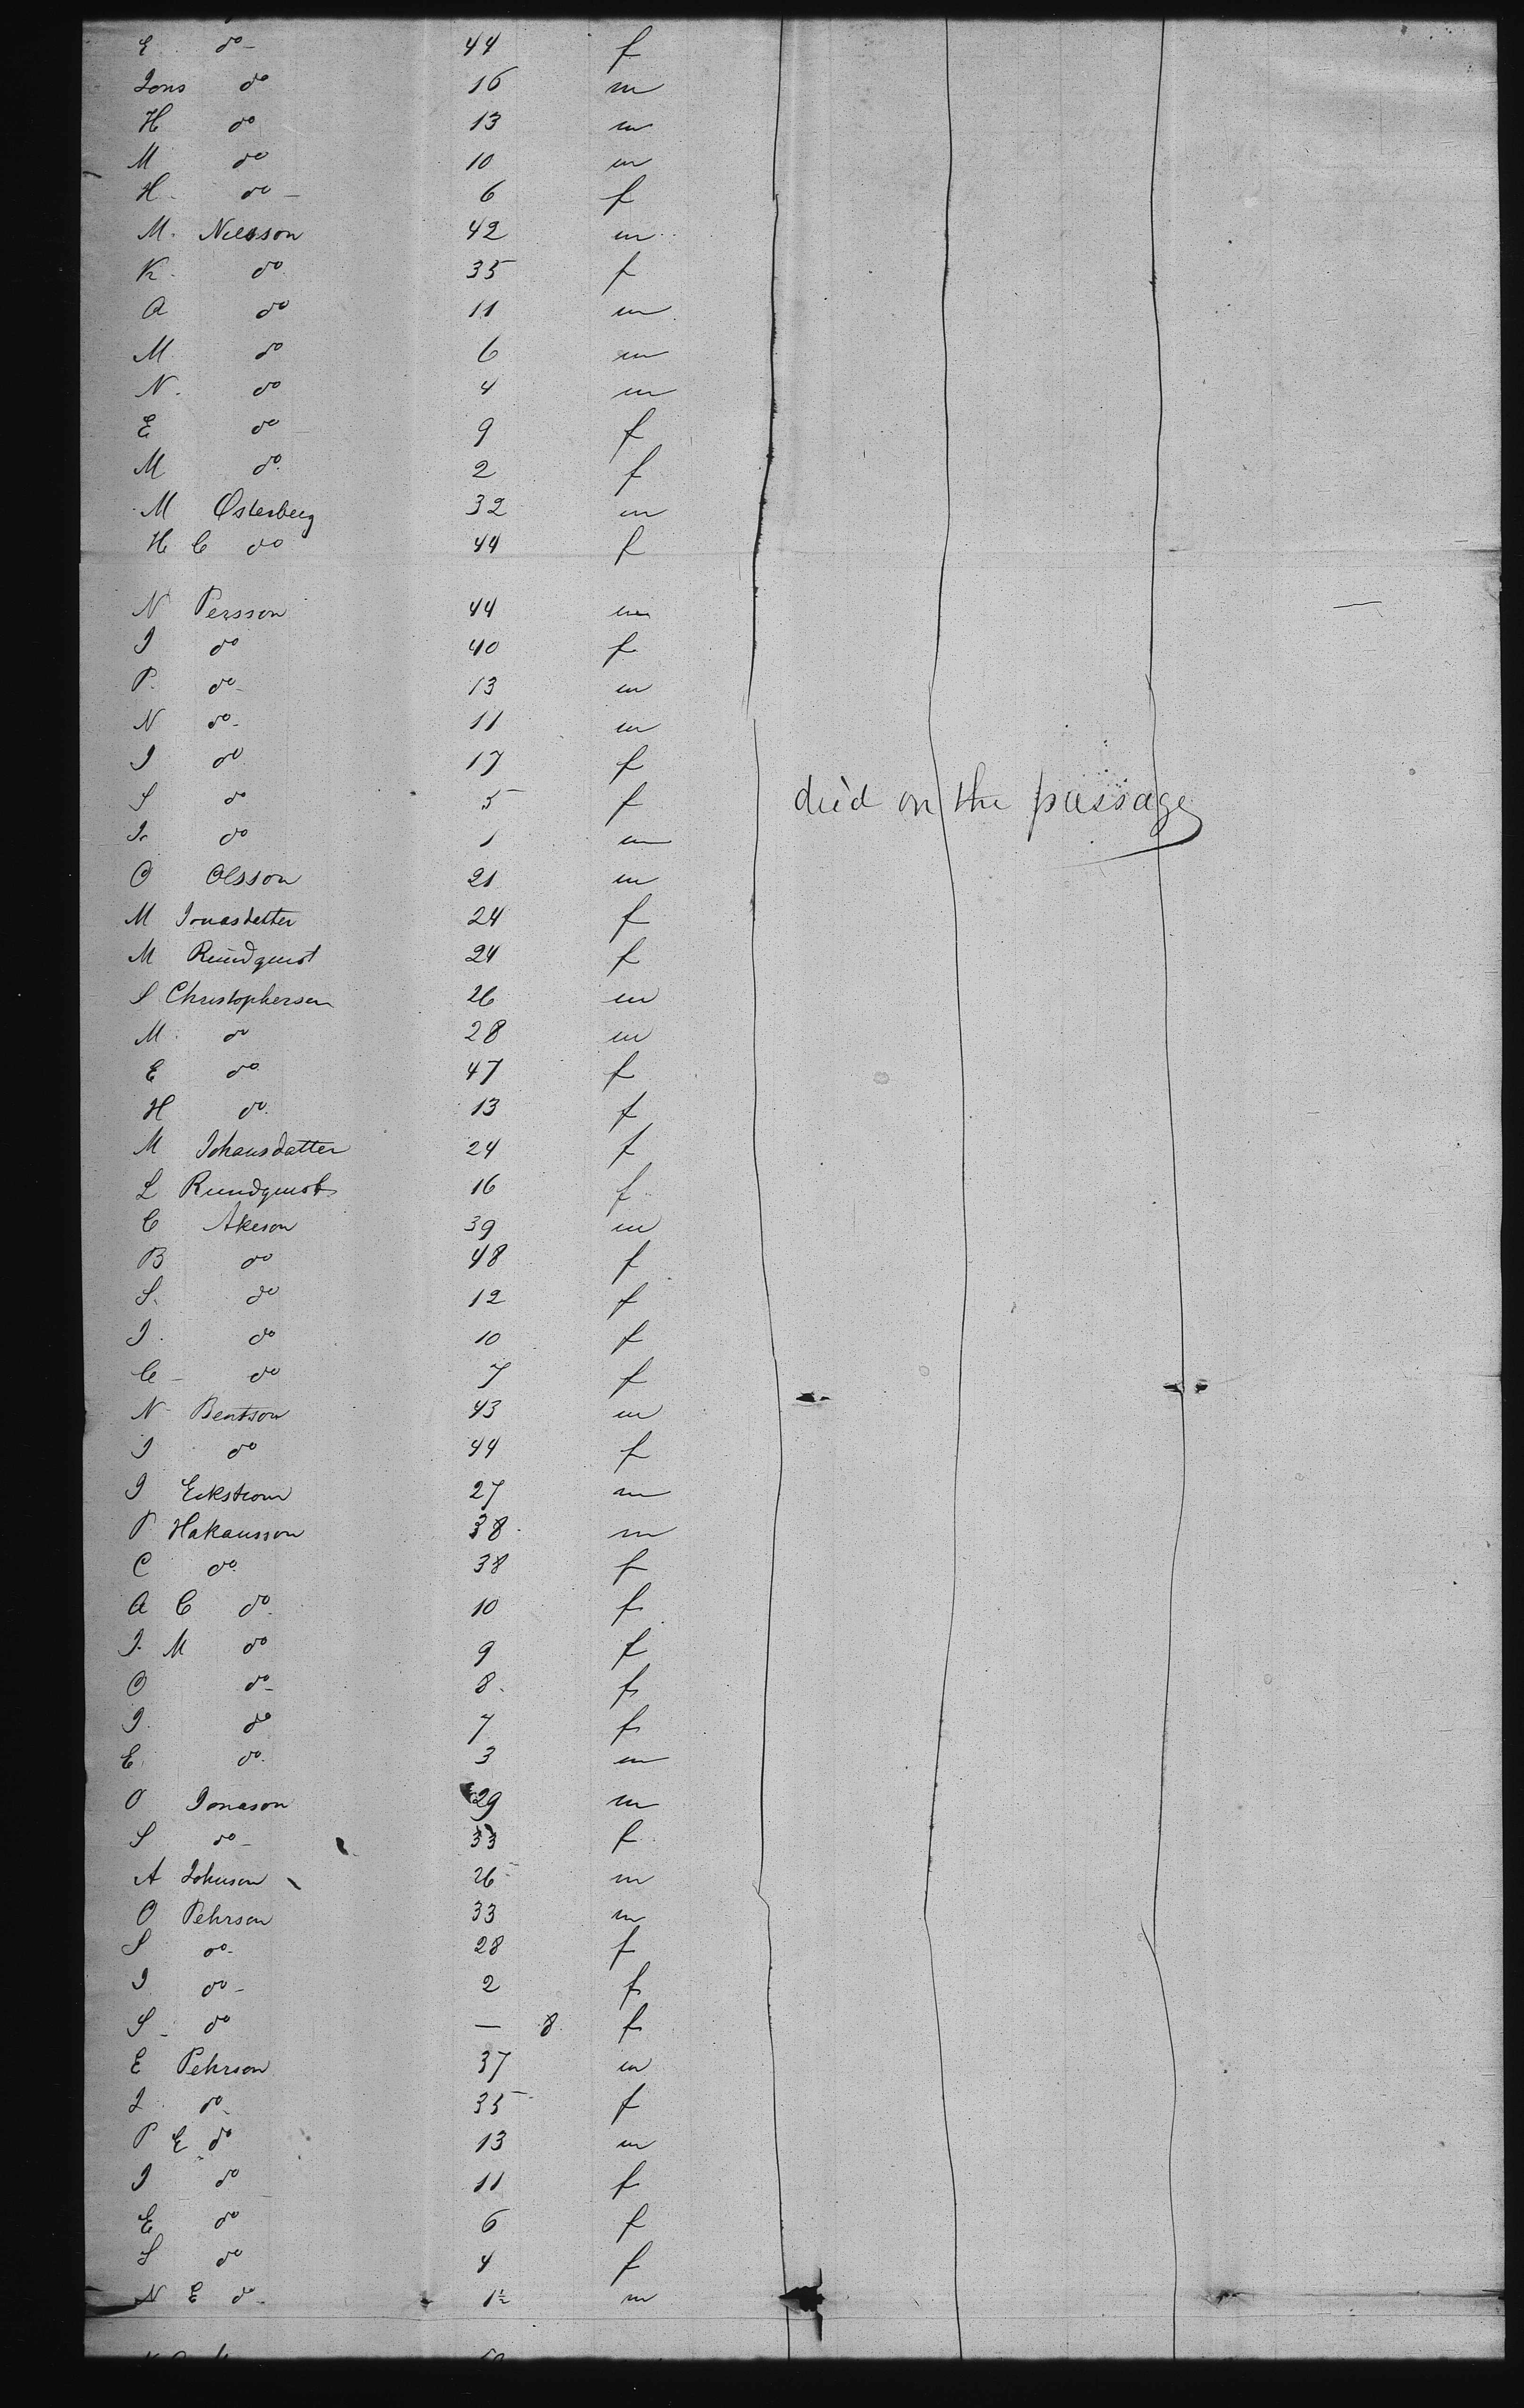 E do 44 f
Jons do 16 m
H do 13 m
M do 10 m
H do 6 f
M. Nilsson 42 m
K. do 35 f
A do 11 m
M do 6 m
N. do 4 m
E do 9 f
M do 2 f
M Osterberg 32 m
H C do 44 f
N Persson 44 m
I do 40 f
P. do 13 m
N do 11 m
I do 17 f
S do 5 f died on the passage
I. do 1 m
O Olsson 21 m
M Jonasdatter 24 f
M Rundquist 24 f
S Christophersen 26 m
M. do 28 m
E do 47 f
H do 13 f
M Johansdatter 24 f
L Rundquist 16 f
C Akeson 39 m
B do 48 f
S. do 12 f
I. do 10 f
C do 7 f
N Bentson 43 m
I do 44 f
I Eckstrom 27 m
P Hakansson 38 m
C do 38 f
A C do 10 f
I. M do 9 f
O do 8 f
I. do 7 f
E do 3 m
O Jonason 29 m
S do 33 f
A Johnson 26 m
O Pehrson 33 m
S do 28 f
I do 2 f
S do — 8 f
E Pehrson 37 m
I. do 35 f
P E do 13 m
I do 11 f
E do 6 f
S do 4 f
N E do 1½ m